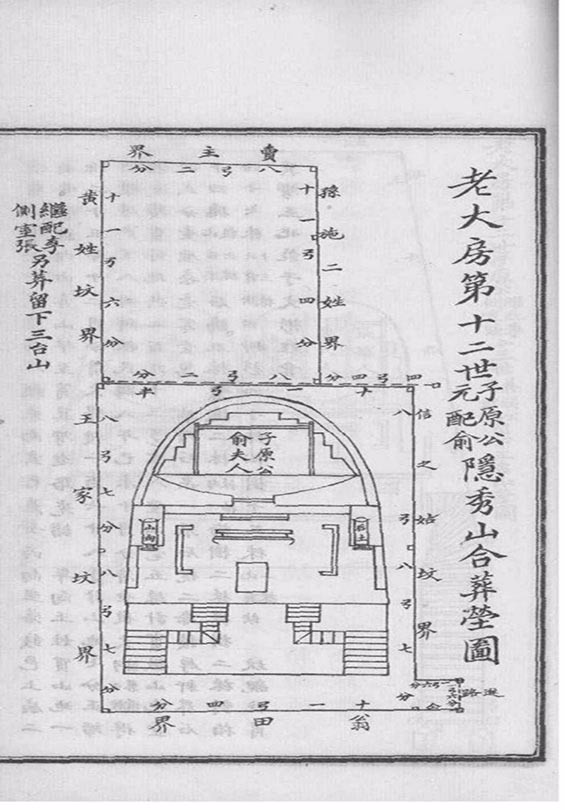 老大房第十二世
子原公
元配俞
隱秀山合葬塋圖
賣主界
八弓二分
孫施二姓界
十一弓四分
十一弓六分
黃姓坟界
繼配李
側室張
另葬留下三台山
四弓四分
八弓分
十一弓半
信之姑坟界
八弓
八弓七分
子原公
俞夫人
后土
山向
八弓七分
八弓七分
王家坟界
進路
十一弓四分
翁田界